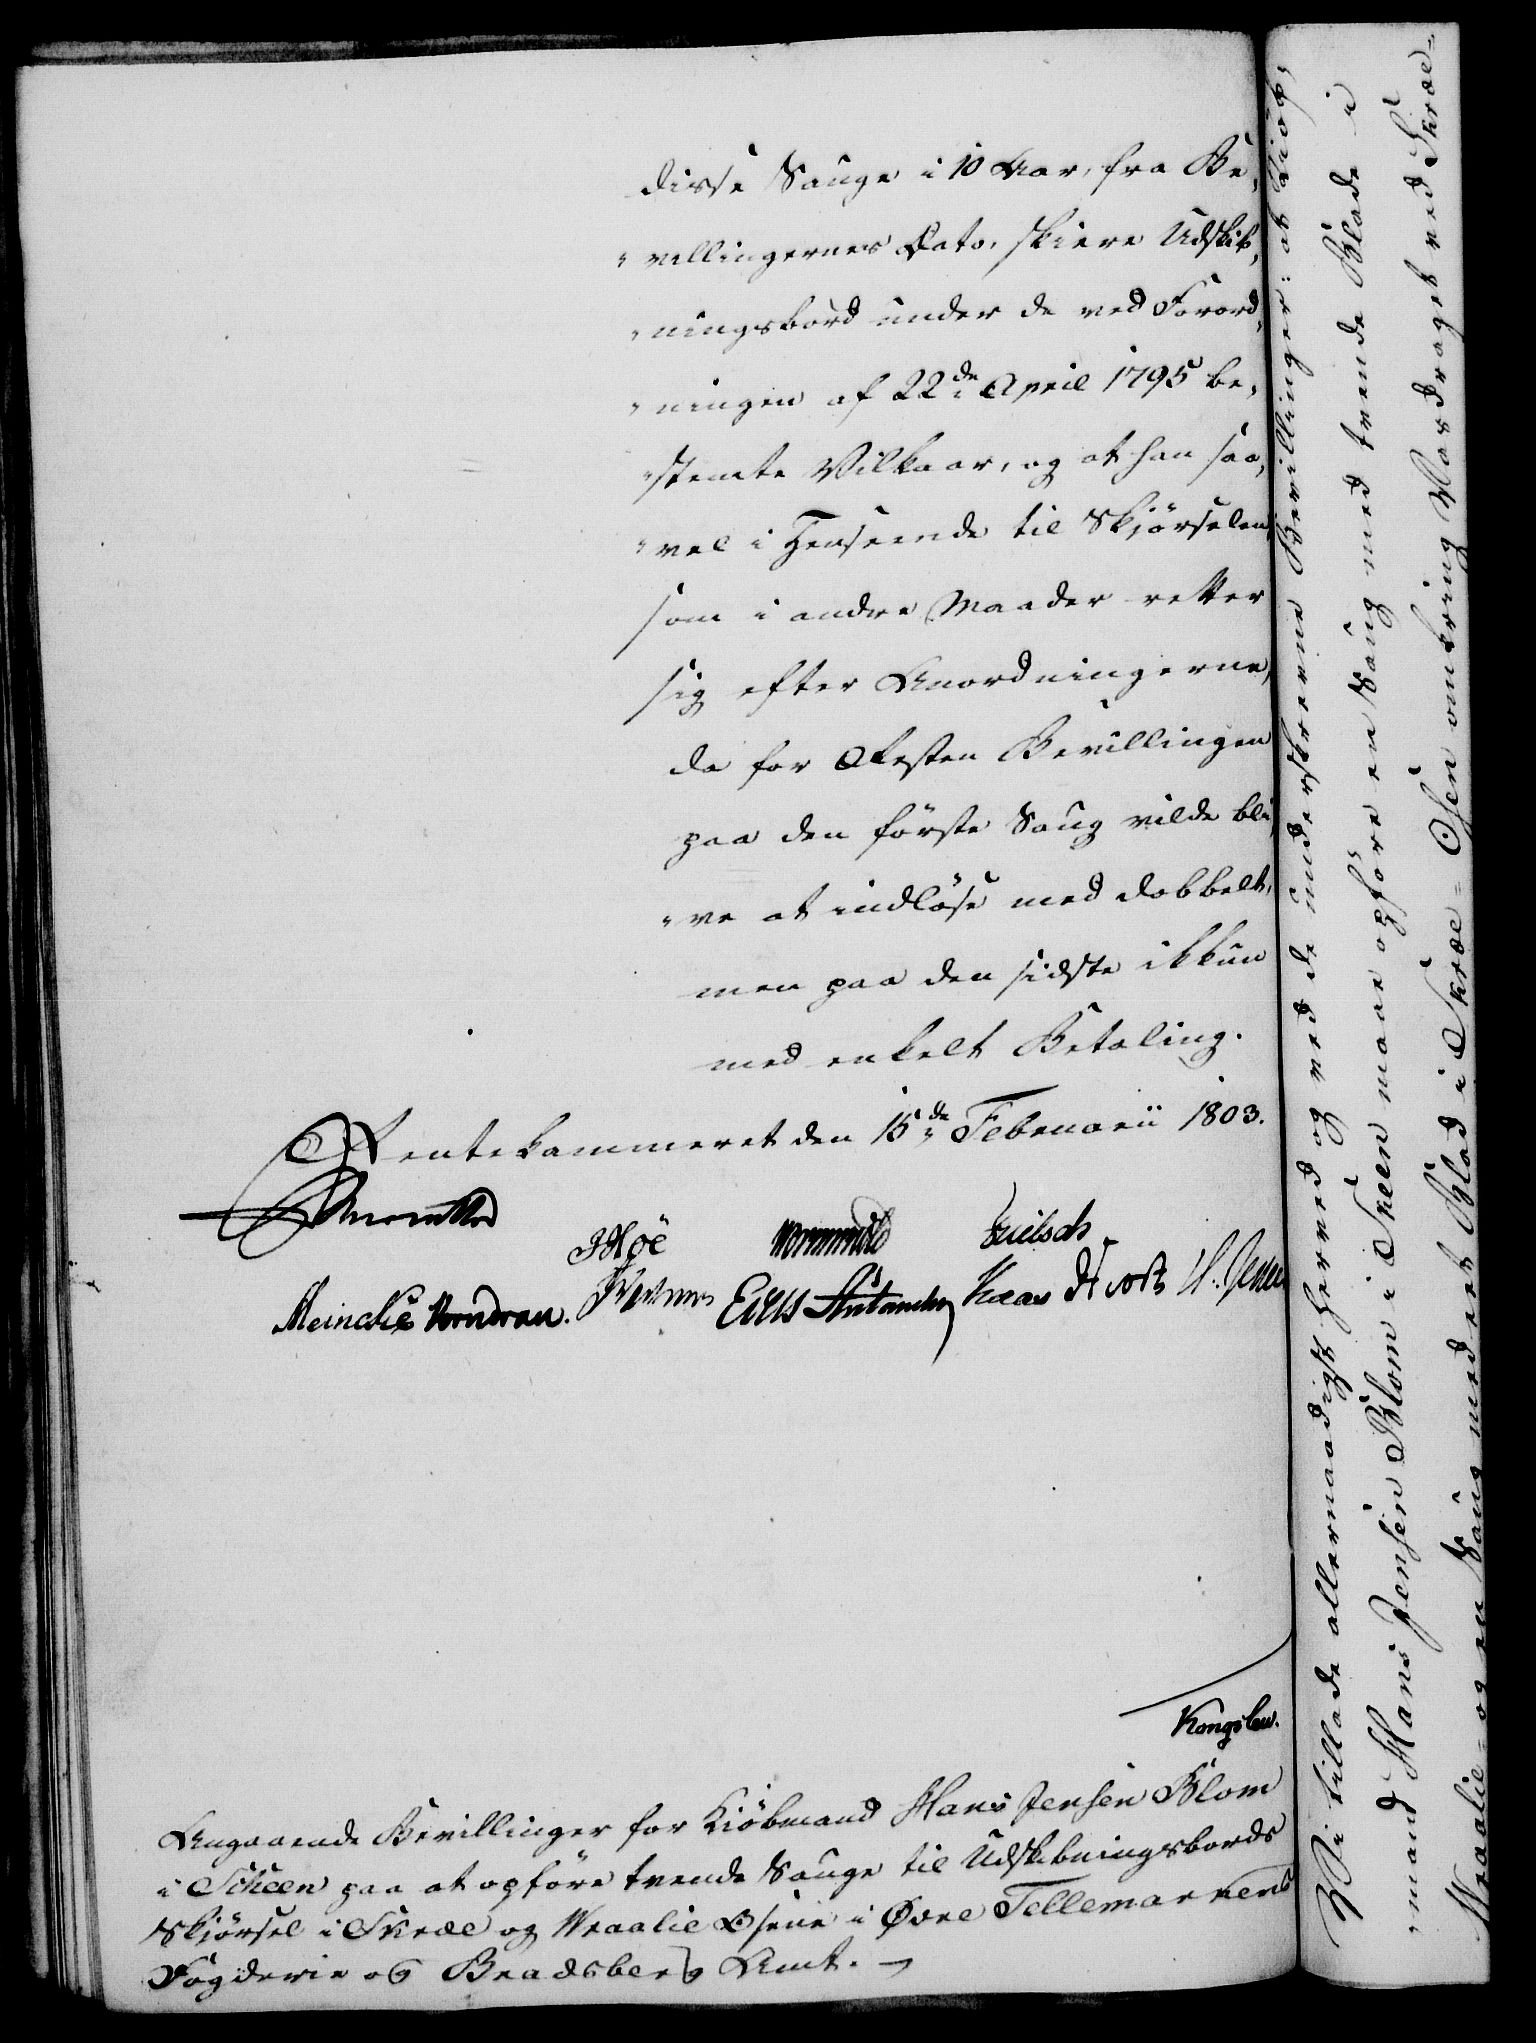 disse Sauge i 10 Aar, fra Be,
"villingernes Dato, skiere Udskib,
"ningsbord under de ved Forord,
"ningen af 22de April 1795 be,
"stemte Vilkaar, og at han saa,
"vel i Henseende til Skjørselen
som i andre Maader retter
sig efter Anordningerne,
da for Resten Bevillingen
paa den første Saug vilde bli,
"ve at indløse med dobbelt,
men paa den sidste ikkun
med enkelt Betaling.
Rentekammeret den 15de Februarii 1803.
Hoë Wormskiold
Meincke Vorndran. Kaas
Kongslew.
Angaaende Bevillinger for Kiöbmand Hans Jensen Blom
i Scheen paa at opföre tvende Sauge til Udskibningsbords
Skjørsel i Skræe og Vraalie Osene i Øvre Tellemarkens
Fogderie og Bradsberg Amt.
Vi tillade allernaadigst herved og ved de underskrevne Bevillinger: at Kiøb,
"mand Hans Jensen Blom i Skeen maae opføre en Saug med tvende Blade i
Vraalie- og en Saug med eet Blad i Skræe- Osen omkring Vasdraget ved Skræe-